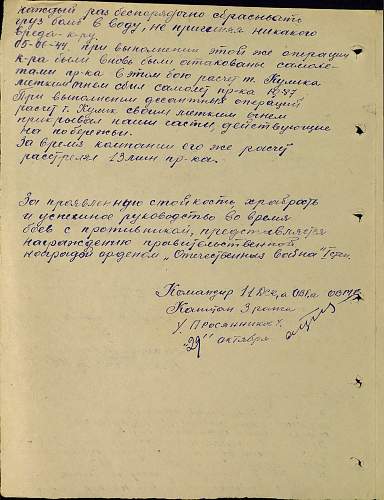 каждый раз беспорядочно сбрасывать
груз бомб в воду, не причиняя никакого
вреда к-ру.
05-06-44. при выполнении этой же операции
к-ра были вновь были атакованы самоле-
тами пр-ка в этом бою расчет т. Кулика
метким огнем сбил самолет пр-ка
При выполнении десантных операций,
расчет т. Кулик своим метким огнем
прикрывал наши части, действующие
на побережьи.
За время кампании его же расчет
расстрелял 13 мин пр-ка.
За проявленную стойкость, храбрость
и успешное руководство во время
боев с противником, представляется
награждению правительственной
наградой орденом „Отечественная война"
Командир 11
Капитан 3 ранга
"29" октября